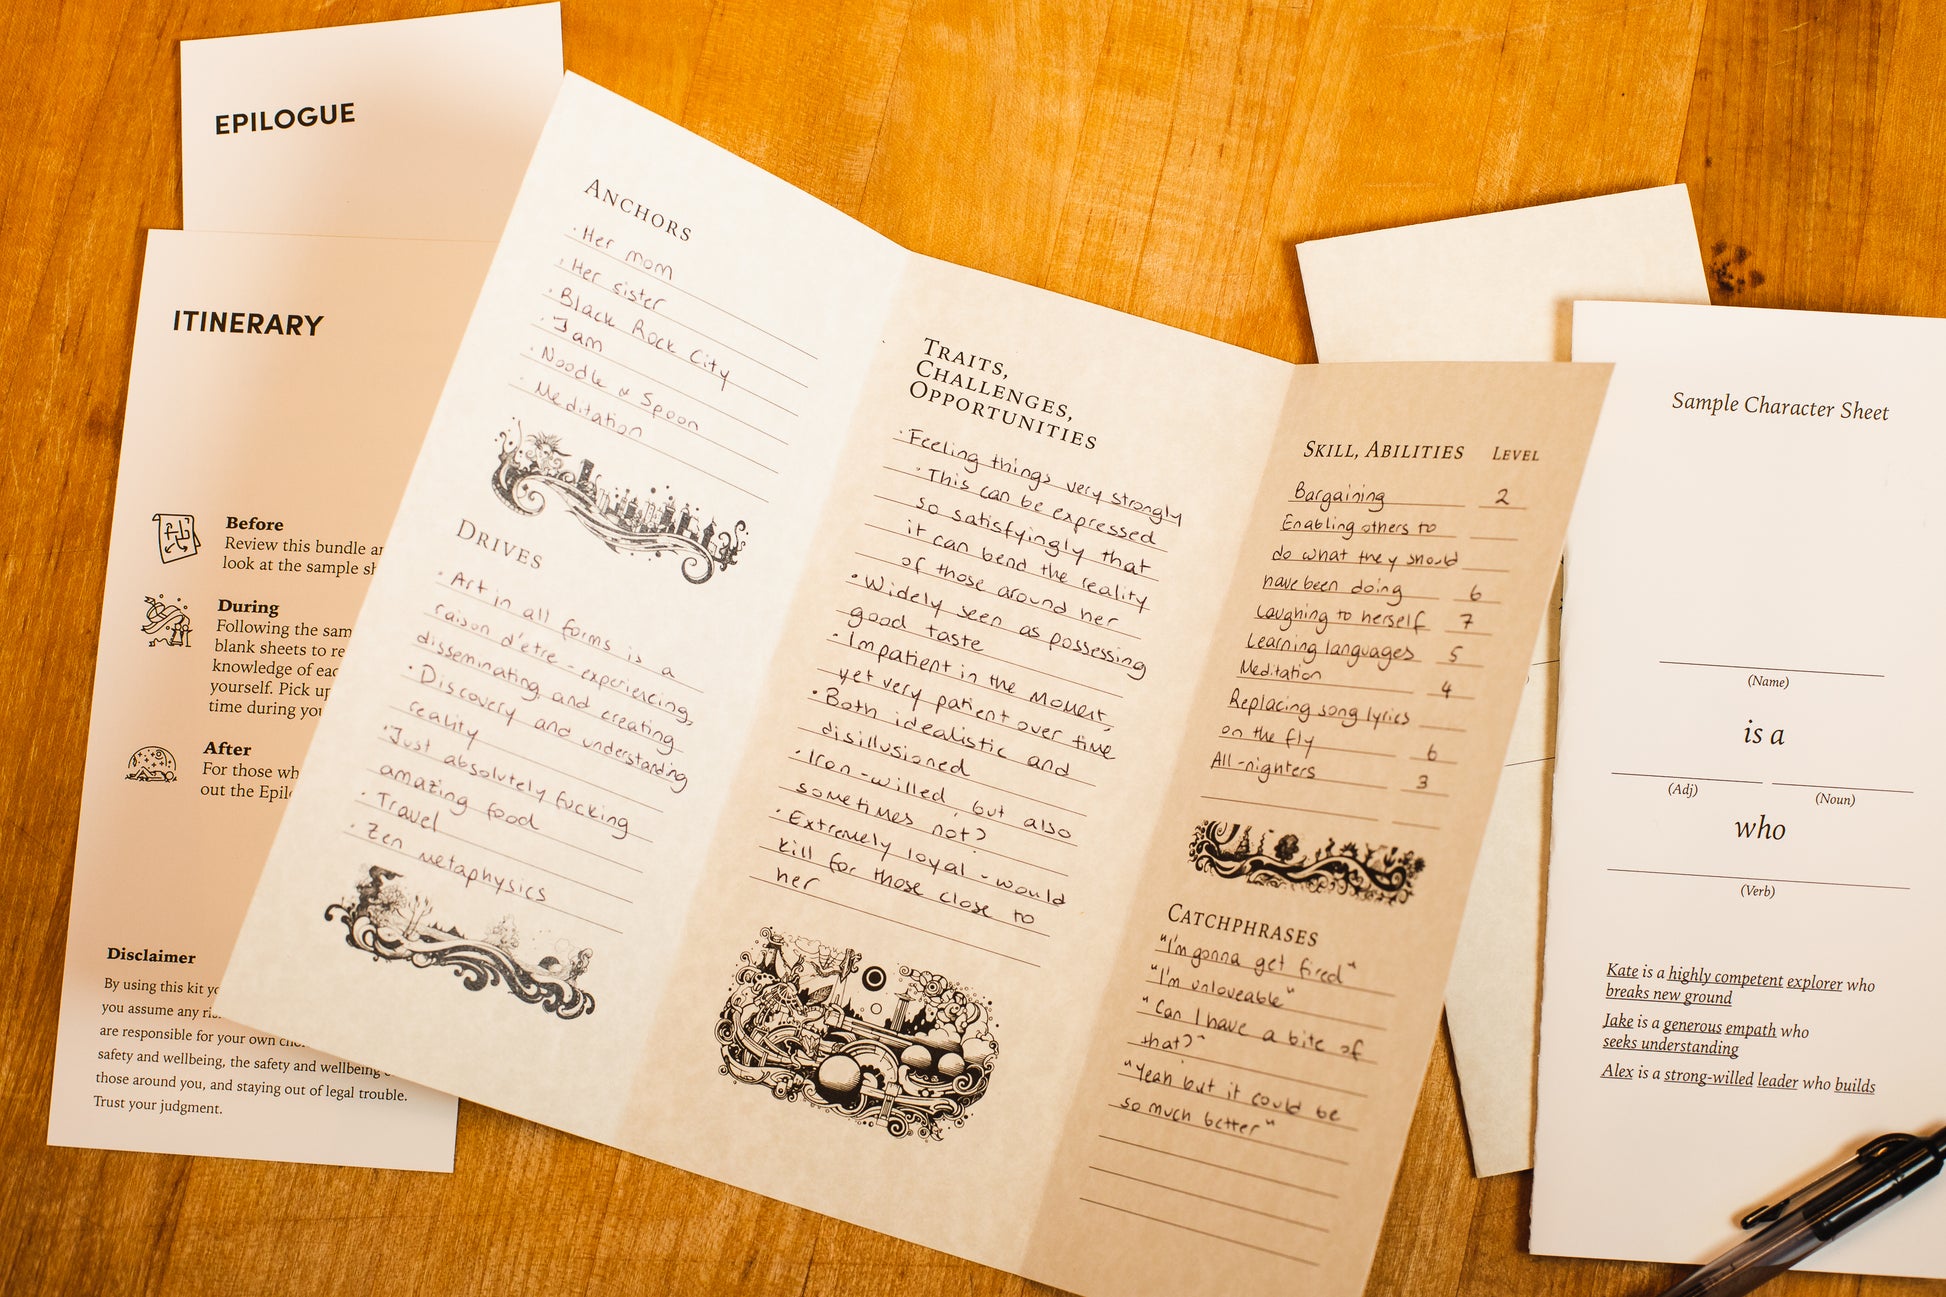 EPILOGUE
ITINERARY
Before
Review this bundle
look at the sample
During
Following the
blank sheets to
knowledge of
yourself. Pick
time during
After
For those
out the
Disclaimer
By using this kit
you assume any
are responsible for your own
safety and wellbeing, the safety and wellbeing
those around you, and staying out of legal trouble.
Trust your judgment.
ANCHORS
· Her mom
· Her sister
· Black Rock City
· Jam
· Noodle & Spoon
· Meditation
DRIVES
· Art in all forms is a
raison d'etre - experiencing,
disseminating and creating
· Discovery and understanding
reality
· Just absolutely fucking
amazing food
· Travel
· Zen metaphysics
TRAITS,
CHALLENGES,
OPPORTUNITIES
· Feeling things very strongly
· This can be expressed
so satisfyingly that
it can bend the reality
of those around her
· Widely seen as possessing
good taste
· Impatient in the moment,
yet very patient over time
· Both idealistic and
disillusioned
· Iron-willed, but also
sometimes not?
· Extremely loyal - would
kill for those close to
her
SKILL, ABILITIES LEVEL
Bargaining 2
Enabling others to
do what they should
have been doing 6
Laughing to herself 7
Learning languages 5
Meditation 4
Replacing song lyrics
on the fly 6
All-nighters 3
CATCHPHRASES
"I'm gonna get fired"
"I'm unloveable"
"Can I have a bite of
that?"
"Yeah but it could be
so much better"
Sample Character Sheet
(Name)
is a
(Adj) (Noun)
who
(Verb)
Kate is a highly competent explorer who
breaks new ground
Jake is a generous empath who
seeks understanding
Alex is a strong-willed leader who builds